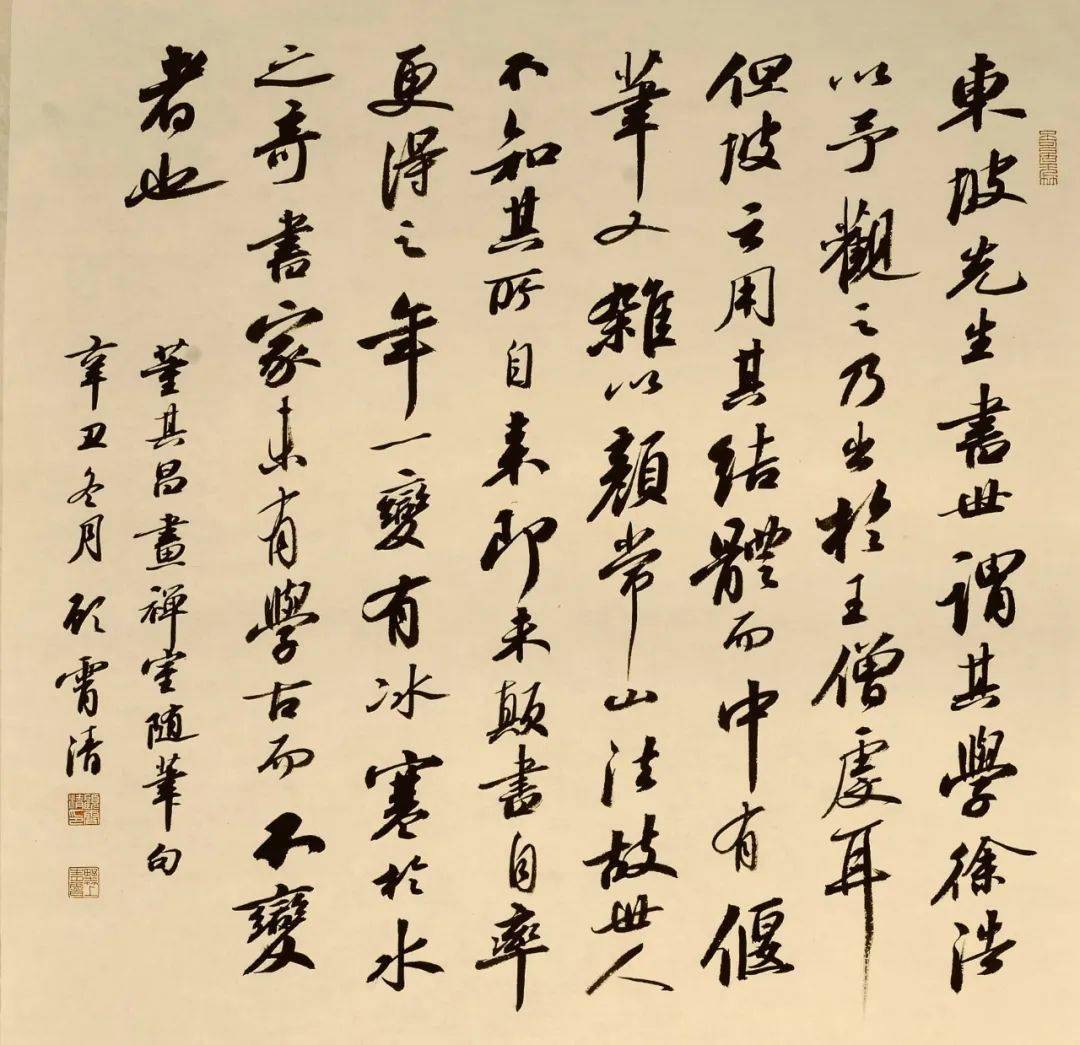 東坡先生書世謂其學徐浩
以予觀之乃出於王僧虔耳
但坡云用其結體而中有偃
筆又雜以顏常山法故世人
不知其所自来即米顛書自率
更得之年一變有冰寒於水
之奇書家未有學古而不變
者也
董其昌畫禪室随筆句
辛丑冬月顾霄清